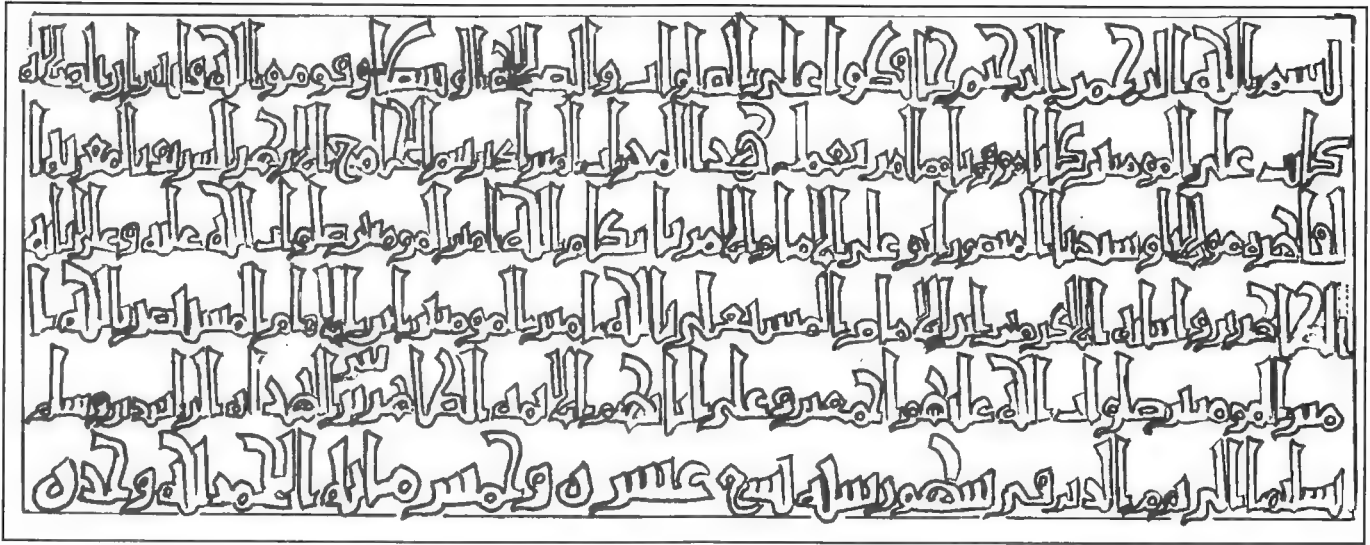 بسم الله الرحمن الرحيم حافظوا على الصلوات والصلاة الوسطى وقوموا لله قانتين ان الصلاة
كانت على المومنين كتابا موقوتا مما امر بعمل هذا المحراب المبارك برسم الجامع الازهر الشريف بالمعزية ا
لقاهرة مولانا وسيدنا المنصور ابو علي الامام الامر باحكام الله امير المومنين صلوات الله عليه وعلى ابائه
الطاهرين وابنائه الاكرمين ابن الامام المستعلي بالله امير المومنين ابن الامام المستنصر بالله ا
مير المومنين صلوات الله عليهم اجمعين وعلى ابائهم الائمة الطاهرين بني الهداة الراشدين وسلم
تسليما الى يوم الدين في شهور سنة تسع عشره وخمس مائة الحمد لله وحده